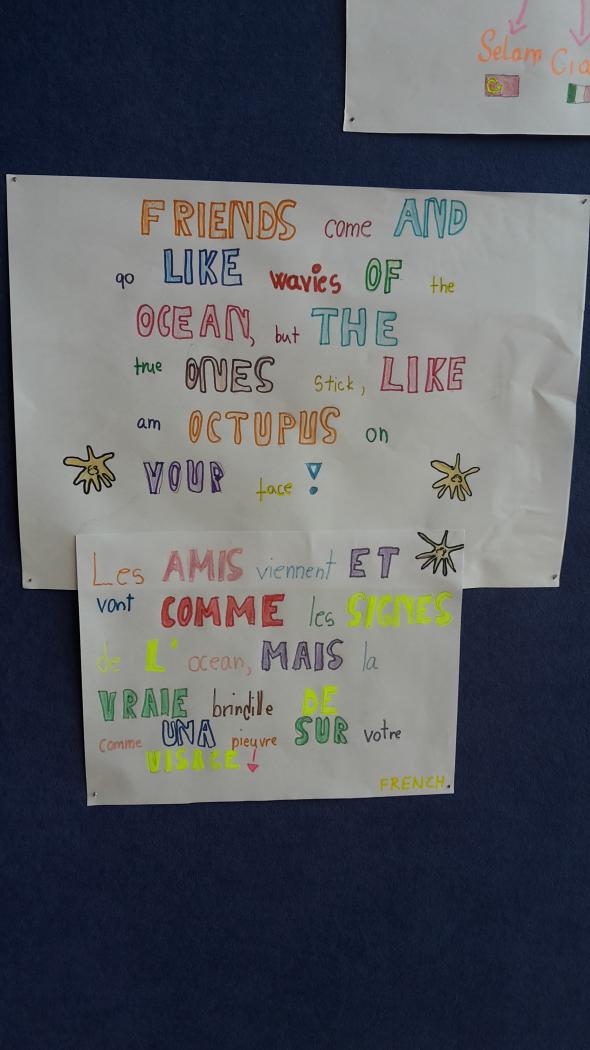 Selam Cia
FRIENDS come AND
go LIKE wavies OF the
OCEAN, but THE
true ONES stick, LIKE
am OCTUPUS on
YOUR face!
Les AMIS viennent ET
vont COMME les SIGNES
de L' ocean, MAIS la
VRAIE brindille DE
comme UNA pieuvre SUR votre
VISAGE!
FRENCH.